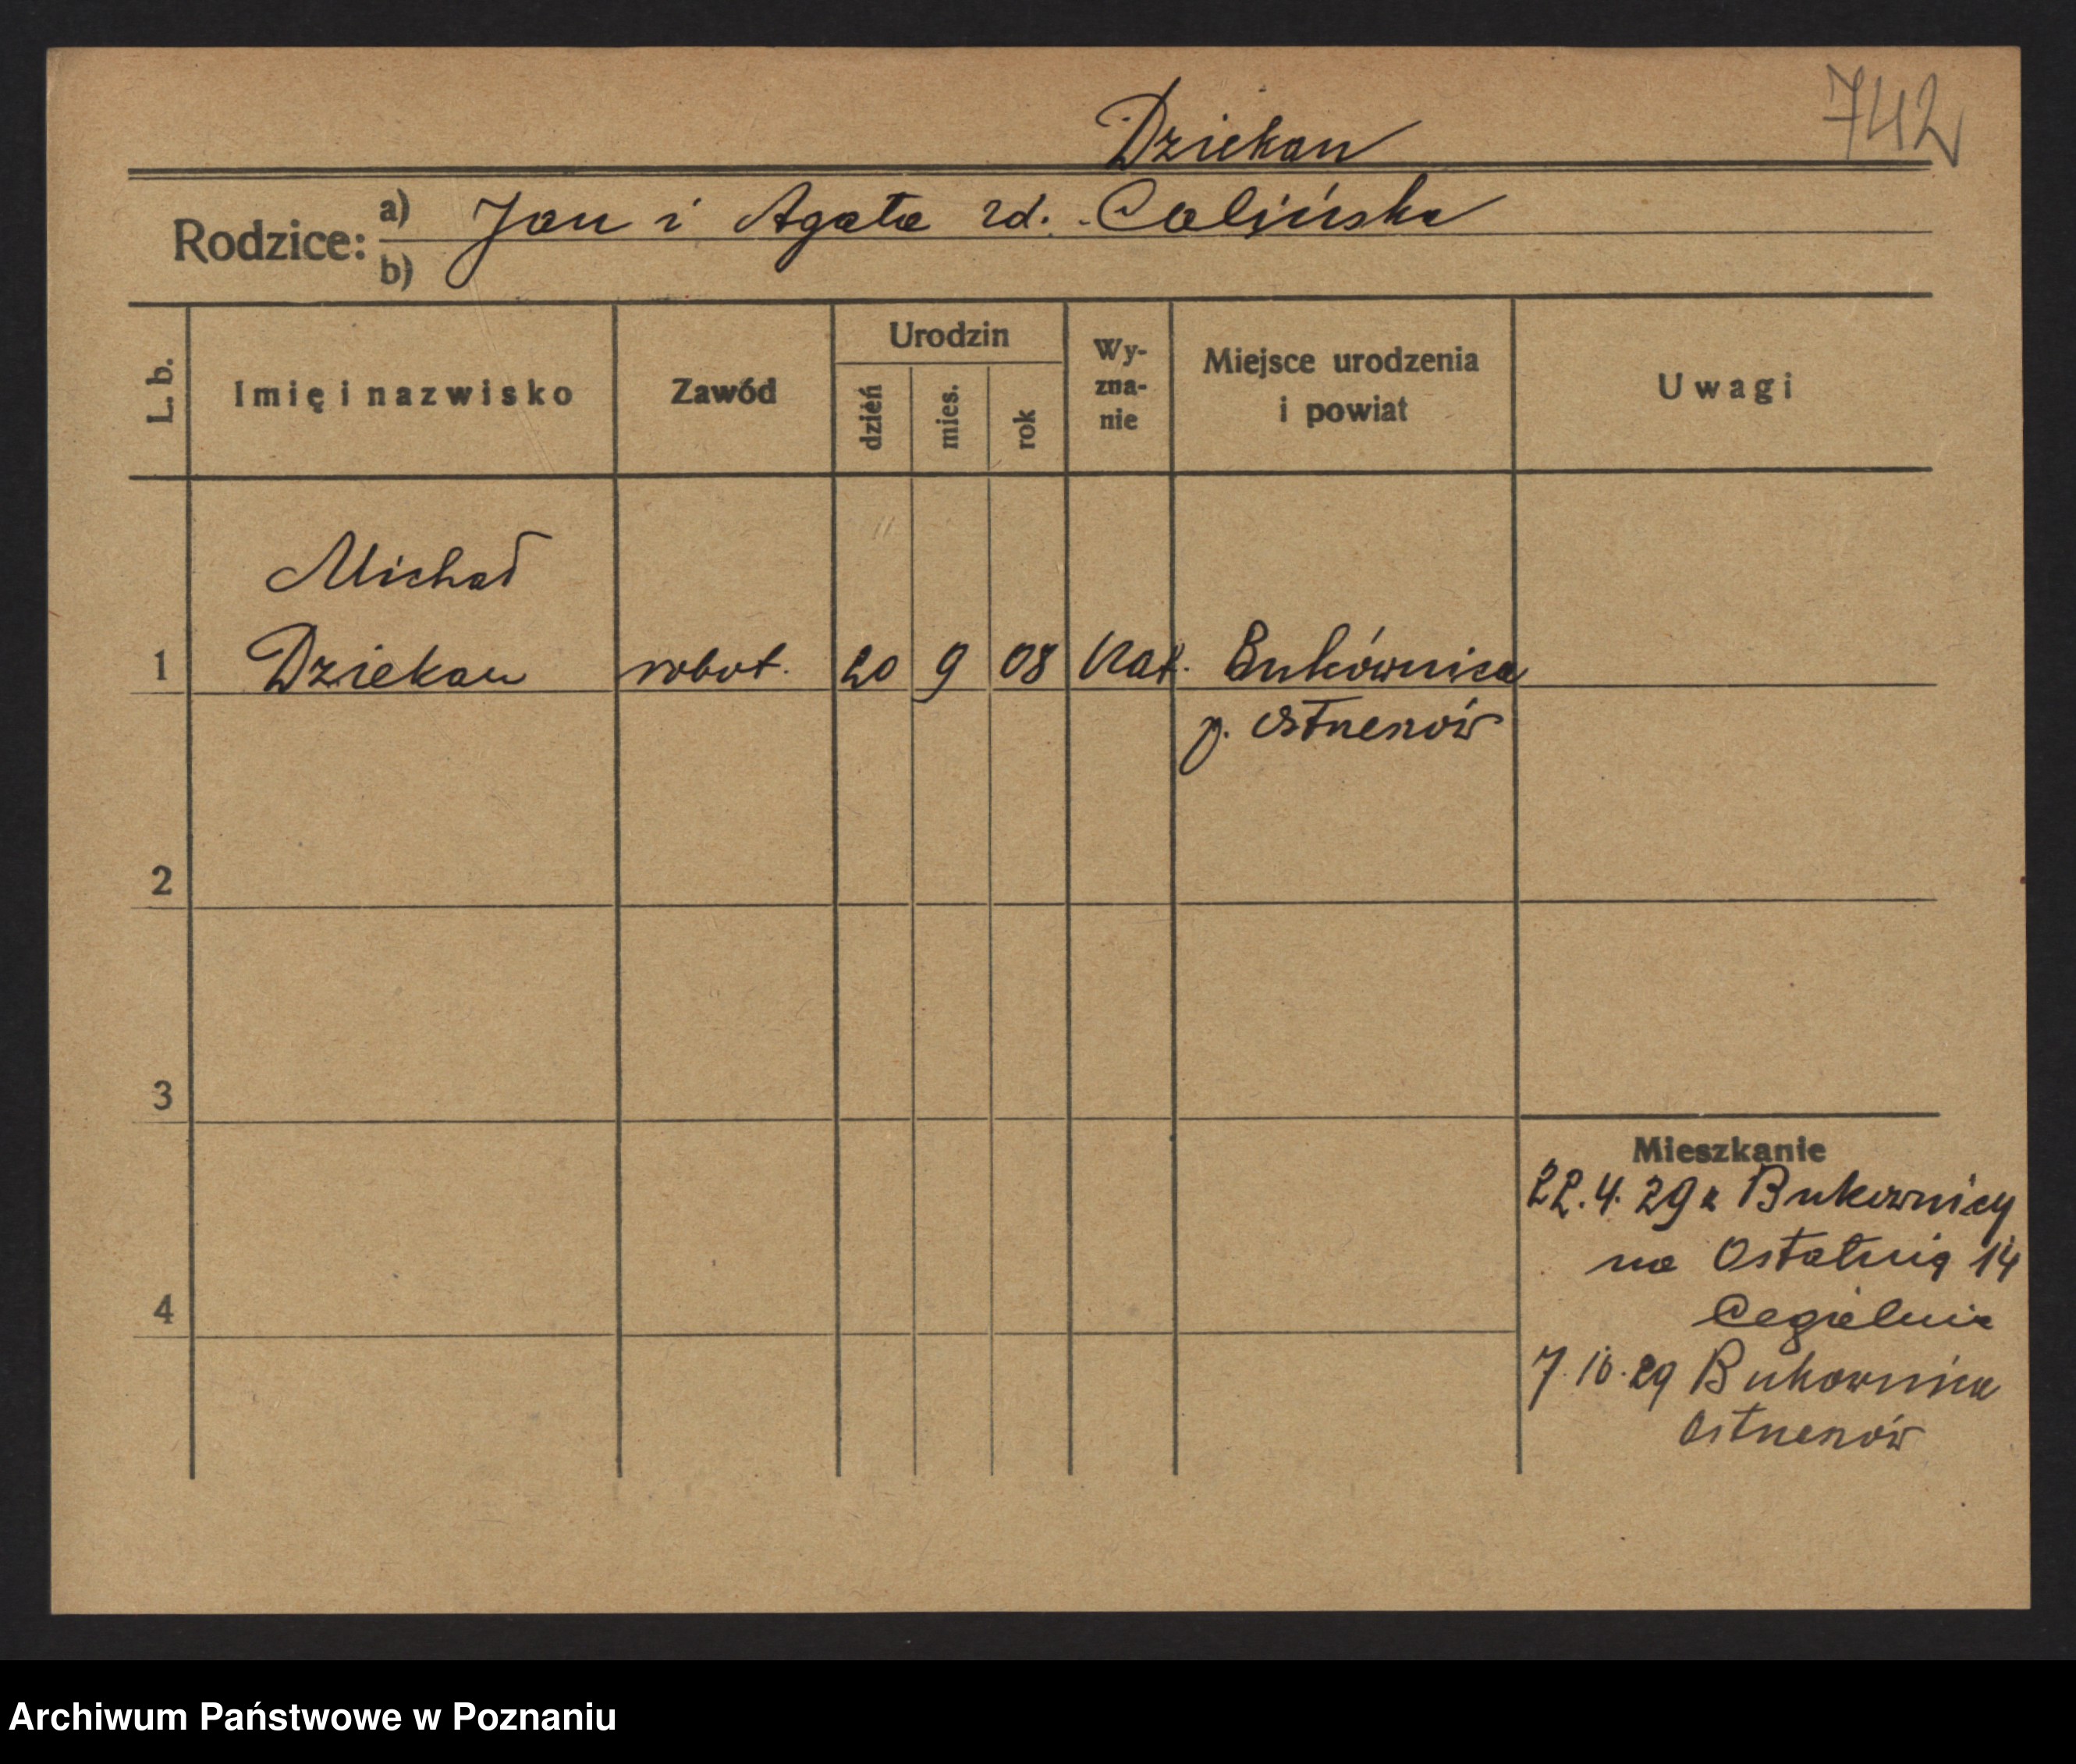 742
Dziekan
Rodzice: a) Jan i Agata zd. Calińska
b)
L. b.
Imię i nazwisko
Zawód
Urodzin
dzień
mies.
rok
Wy-
zna-
nie
Miejsce urodzenia
i powiat
Uwagi
Michał
1 Dziekan robot. 20 9 08 Kat. Bukównica
p. Ostrzeszów
2
3
4
Mieszkanie
22.4.29 z Bukownicy
na Ostatnią 14
Cegielnia
7.10.29 Bukownica
Archiwum Państwowe w Poznaniu